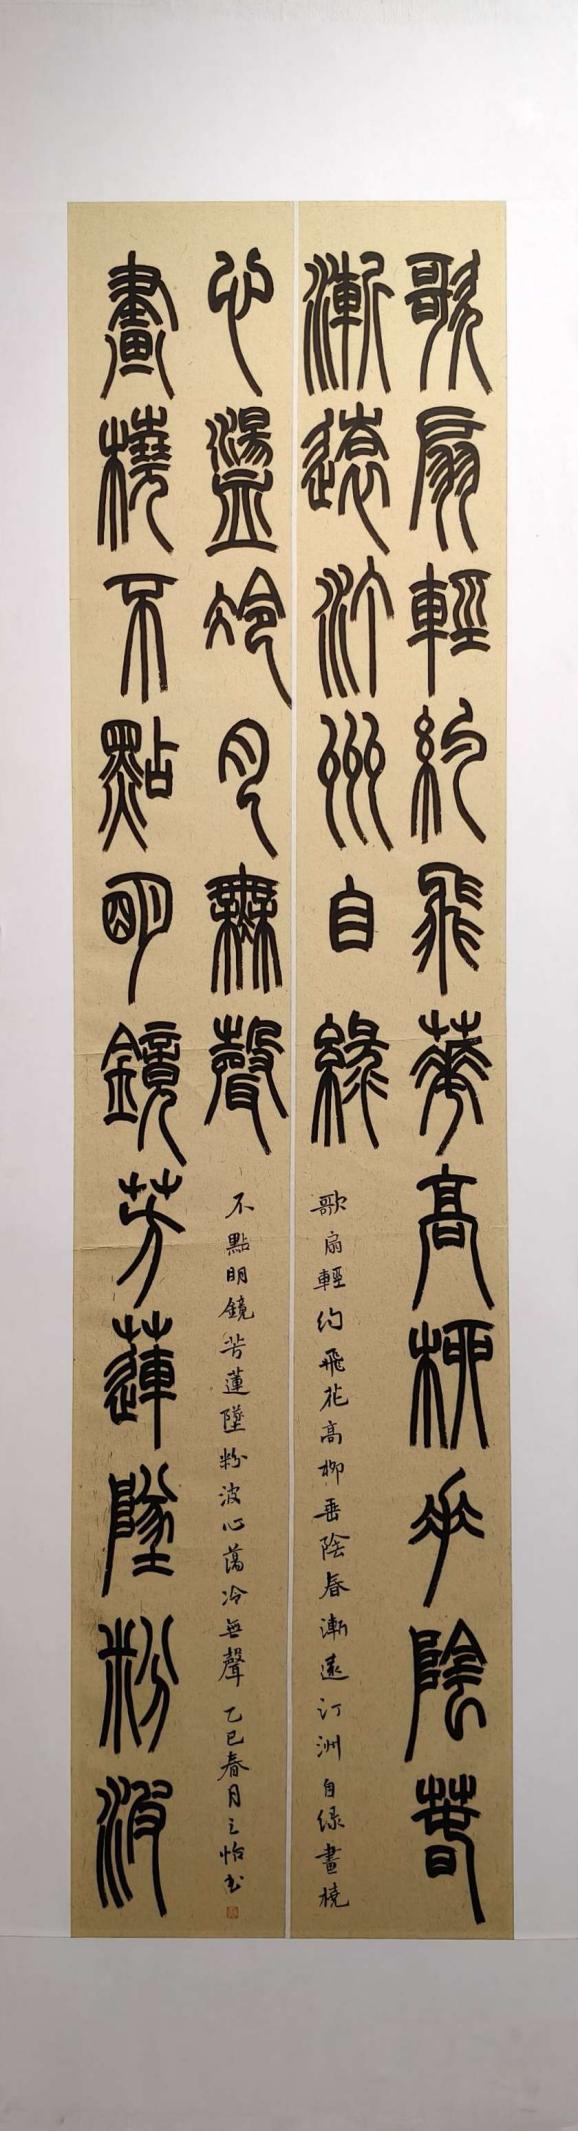 歌扇輕約飛華高柳垂陰春
漸遠汀洲自綠
畫橈不點明鏡芳蓮墜粉波
心盪冷月無聲
歌扇輕約飛花高柳垂陰春漸遠汀洲自緑畫橈
不點明鏡芳蓮墜粉波心蕩冷無聲 乙巳春月之怡书